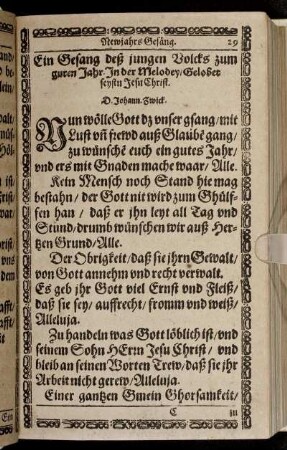 Newjahrs Gesäng.
29
Ein Gesang deß jungen Volcks zum
guten Jahr. In der Melodey, Gelobet
seystu Jesu Christ.
D. Johann. Zwick.
Nun wölle Gott dz vnser gsang/mit
Lust vñ frewd auß Glaubē gang/
zu wünschē euch ein gutes Jahr/
vnd ers mit Gnaden mache waar/ Alle.
Kein Mensch noch Stand hie mag
bestahn/ der Gott nit wird zum Ghülf-
fen han/ daß er ihn leyt all Tag vnd
Stund/drumb wünschen wir auß Her-
tzen Grund/Alle.
Der Obrigkeit/daß sie jhrn Gewalt/
von Gott annehm vnd recht verwalt.
Es geb jhr Gott viel Ernst vnd Fleiß/
daß sie sey/ auffrecht/ fromm vnd weiß/
Alleluja.
Zu handeln was Gott löblich ist/vnd
seinem Sohn HErrn Jesu Christ/ vnd
bleib an seinen Worten Trew/daß sie jhr
Arbeit nicht gerew/Alleluja.
Einer gantzen Gmein Ghorsamkeit/
C
zu